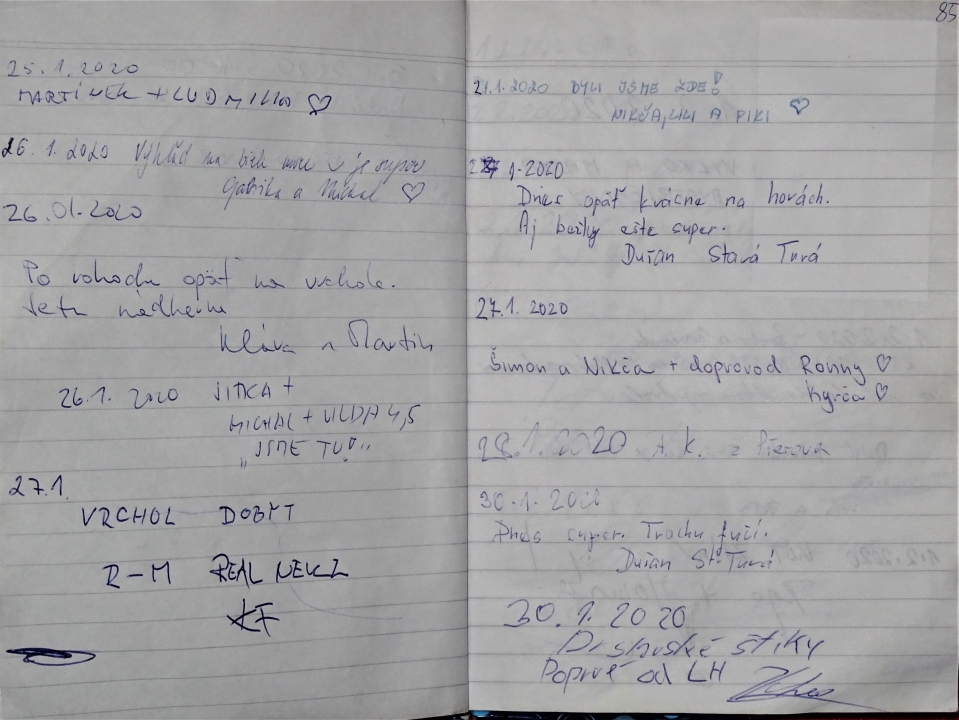 25.1.2020
MARTÍNEK + LUDMILKA ♡
26.1.2020 Výhľad na more je super
Gabika a Michal ♡
26.01-2020
Po rohodu opäť na vrchole.
Je tu nádherne
Klára a Martin
26.1. 2020 JITKA +
MICHAL + VILDA 4,5
"JSME TU!"
27.1.
VRCHOL DOBYT
R-M REAL NEKZ
KF
85
27.1.2020 BYLI JSME ZDE!
NIKČA, LILI A PIKI ♡
27 1-2020
Dnes opäť krásne na horách.
Aj bežky ešte super.
Dušan Stará Turá
27.1. 2020
Šimon a Nikča + doprovod Ronny ♡
Kyrča ♡
28.1.2020 A.K. z Přerova
30.1.2020
Dnes super. Trochu fučí.
Dušan St. Turá
30.1.2020
štiky
Poprvé od LH